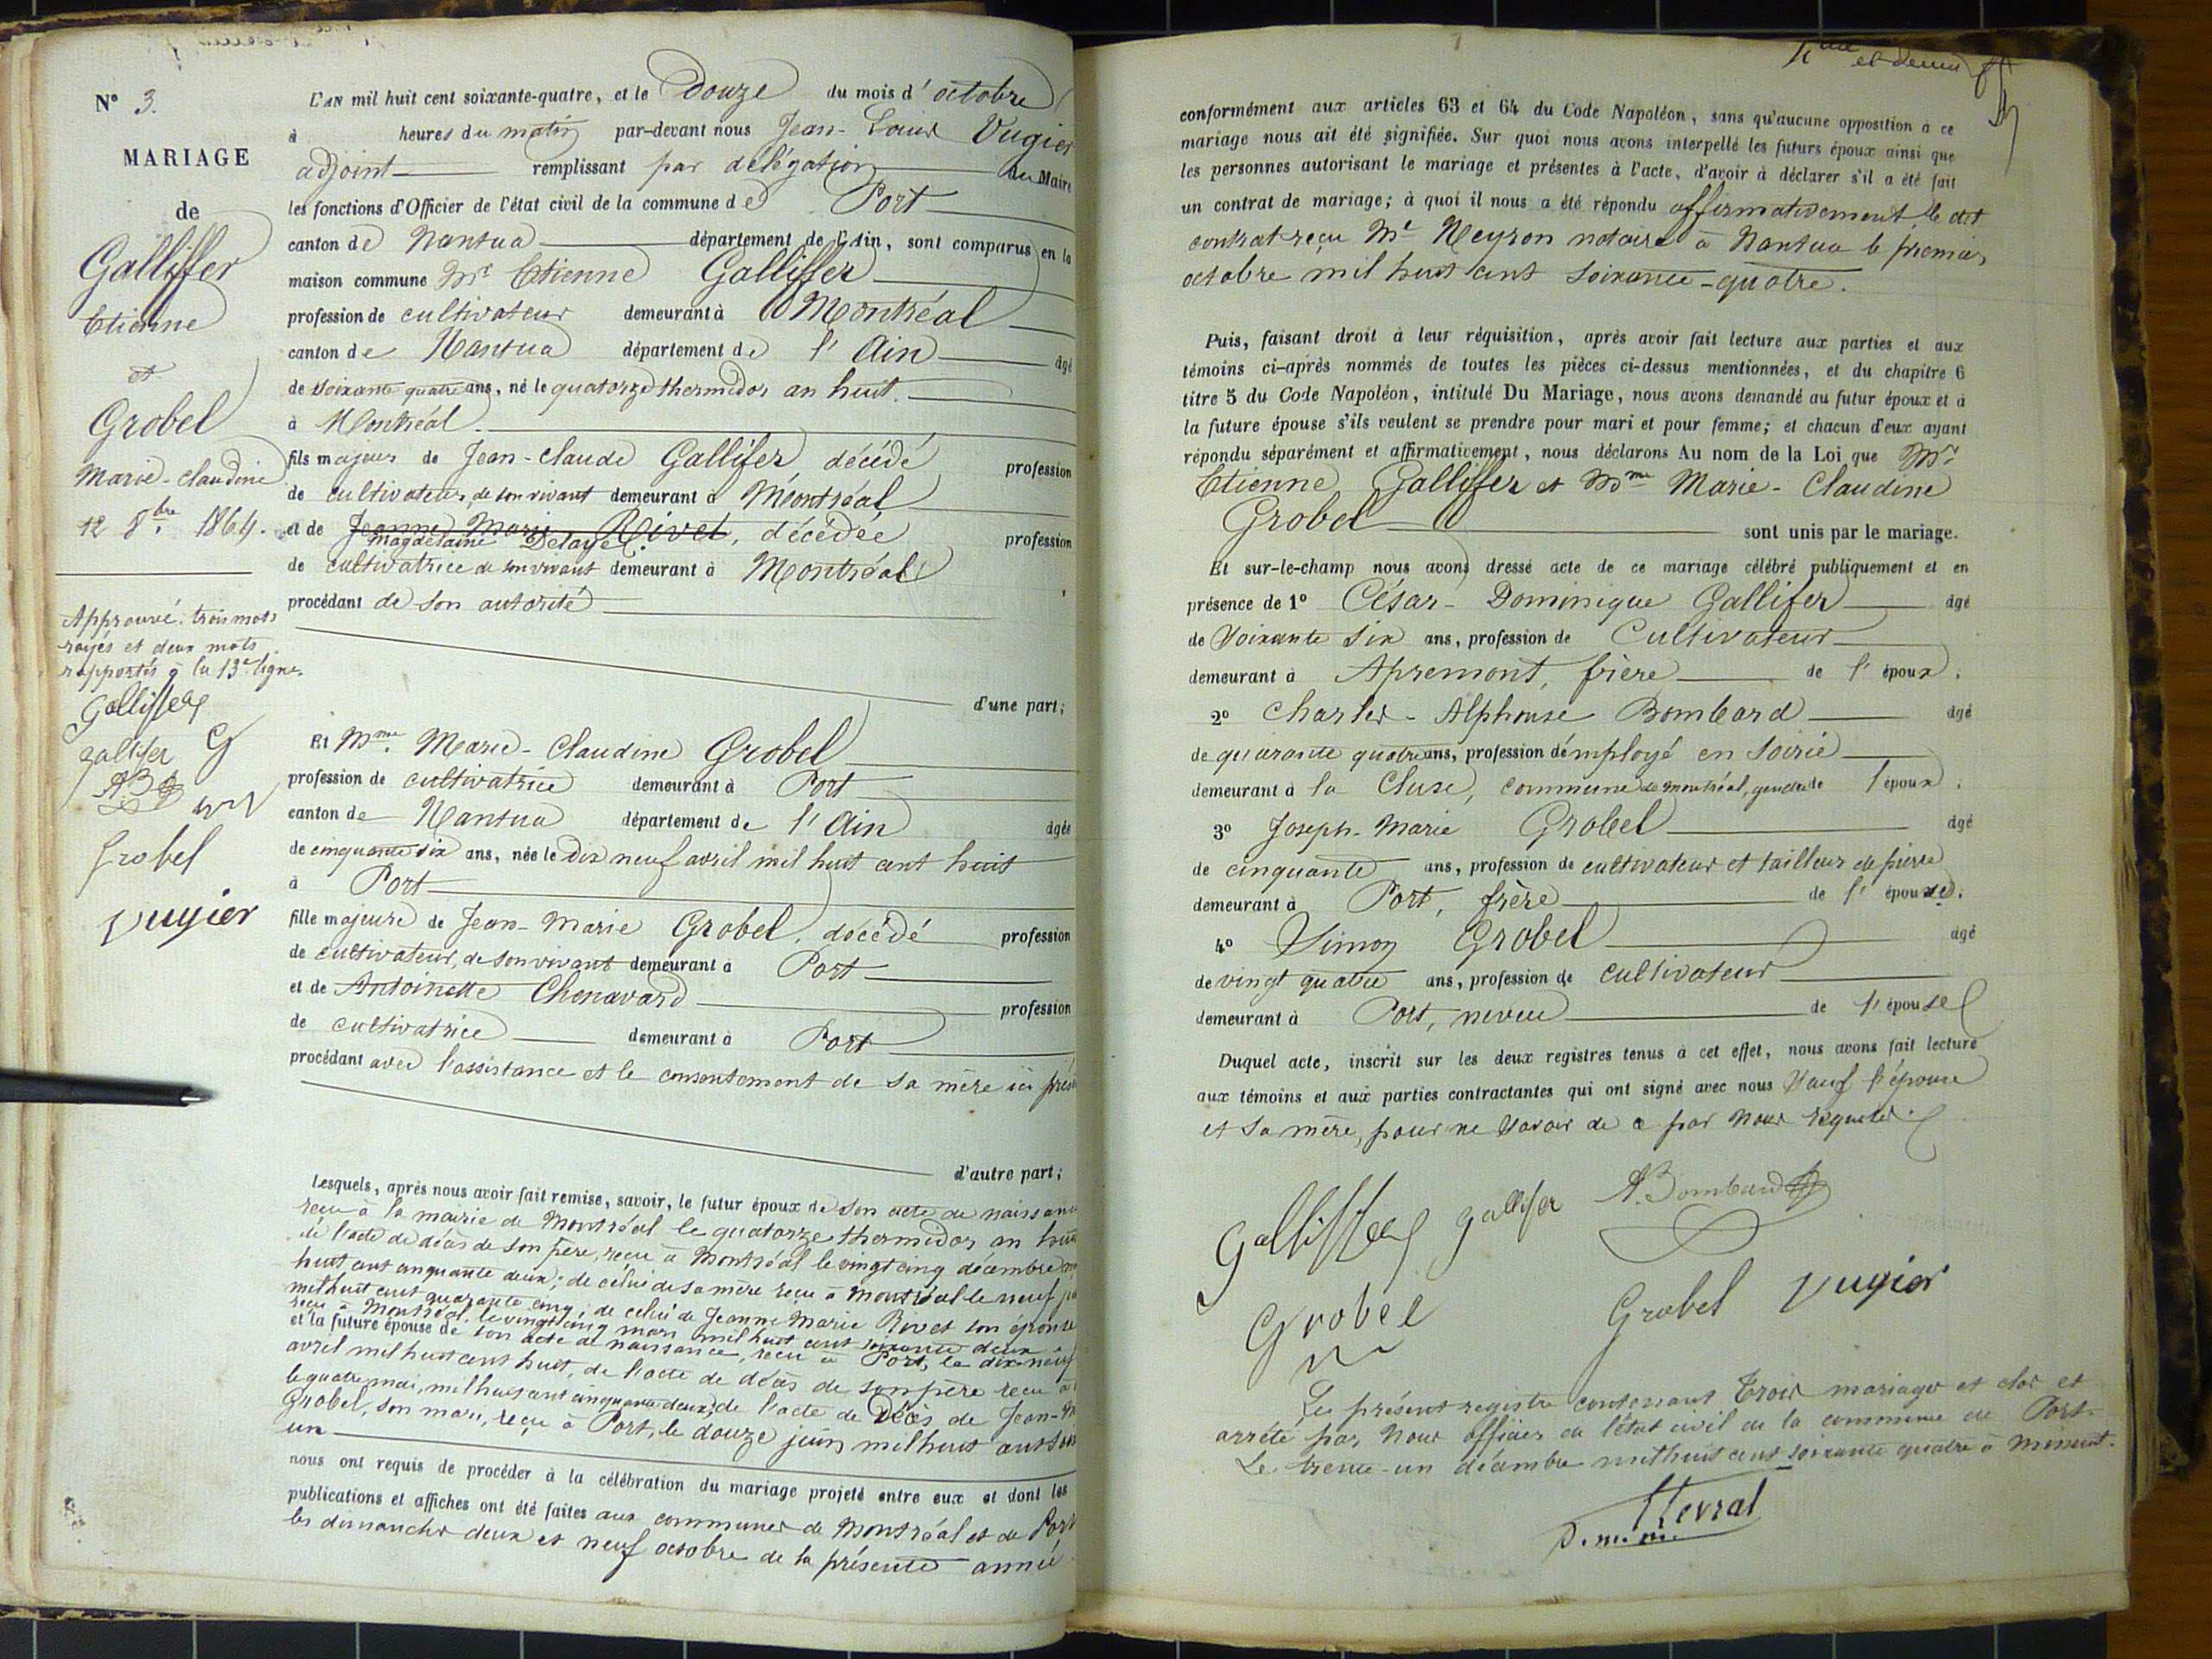 N° 3.
MARIAGE
de
Galliffer
Etienne
et
Grobel
Marie-Claudine
12 8bre 1864.
Approuvé: trois mots
rayés et deux mots
rapportés à la 13e ligne.
Galliffer
gallifer G
AB
Grobel
Vugier
L'AN mil huit cent soixante-quatre, et le Douze du mois d'octobre
à heures du matin par-devant nous Jean-Louis Vugier
adjoint remplissant par délégation du Maire
les fonctions d'Officier de l'état civil de la commune de Port
canton de Nantua département de l'Ain, sont comparus en la
maison commune Mr Etienne Galliffer
profession de cultivateur demeurant à Montréal
canton de Nantua département de l'Ain âgé
de soixante quatre ans, né le quatorze thermidor an huit.
à Montréal.
fils majeur de Jean-Claude Gallifer, décédé profession
de cultivateur, de son vivant demeurant à Montréal
et de Jeanne Marie Rivet, décédée profession
Magdelaine Delaye
de cultivatrice de son vivant demeurant à Montréal
procédant de son autorité
d'une part;
Et Mme Marie-Claudine Grobel
profession de cultivatrice demeurant à Port
canton de Nantua département de l'Ain âgée
de cinquante six ans, née le dix neuf avril mil huit cent huit
à Port
fille majeure de Jean-Marie Grobel, décédé profession
de cultivateur, de son vivant demeurant à Port
et de Antoinette Chenavard profession
de cultivatrice demeurant à Port
procédant avec l'assistance et le consentement de sa mère ici
d'autre part;
Lesquels, après nous avoir fait remise, savoir, le futur époux de son acte de naissance
reçu à la mairie de Montréal le quatorze thermidor an huit
de l'acte de décès de son père, reçu à Montréal le vingt cinq décembre
huit cent cinquante deux; de celui de sa mère reçu à Montréal le neuf
mil huit cent quarante cinq; de celui de Jeanne Marie Rivet son épouse
reçu à Montréal, le vingt cinq mars mil huit cent soixante deux
et la future épouse de son acte de naissance, reçu à Port, le dix-neuf
avril mil huit cent huit, de l'acte de décès de son père reçu à
le quatre mai, mil huit cent cinquante deux, de l'acte de Décès de Jean-
Grobel, son mari, reçu à Port, le douze juin mil huit cent
un
nous ont requis de procéder à la célébration du mariage projeté entre eux et dont les
publications et affiches ont été faites aux communes de Montréal et de Port
les dimanches deux et neuf octobre de la présente année
et demi
conformément aux articles 63 et 64 du Code Napoléon, sans qu'aucune opposition à ce
mariage nous ait été signifiée. Sur quoi nous avons interpellé les futurs époux ainsi que
les personnes autorisant le mariage et présentes à l'acte, d'avoir à déclarer s'il a été fait
un contrat de mariage; à quoi il nous a été répondu affirmativement le dit
contrat reçu Me Neyron notaire à Nantua le premier
octobre mil huit cent soixante-quatre.
Puis, faisant droit à leur réquisition, après avoir fait lecture aux parties et aux
témoins ci-après nommés de toutes les pièces ci-dessus mentionnées, et du chapitre 6
titre 5 du Code Napoléon, intitulé Du Mariage, nous avons demandé au futur époux et à
la future épouse s'ils veulent se prendre pour mari et pour femme; et chacun d'eux ayant
répondu séparément et affirmativement, nous déclarons Au nom de la Loi que Mr
Etienne Galliffer et Mme Marie-Claudine
Grobel sont unis par le mariage.
Et sur-le-champ nous avons dressé acte de ce mariage célébré publiquement et en
présence de 1° César-Dominique Gallifer âgé
de soixante six ans, profession de Cultivateur
demeurant à Apremont, frère de l'époux.
2° Charles-Alphonse Bombard âgé
de quarante quatre ans, profession d'employé en soirie
demeurant à la Cluse, commune de Montréal, gendre de l'époux.
3° Joseph-Marie Grobel âgé
de cinquante ans, profession de cultivateur et tailleur de pierre
demeurant à Port, frère de l'épouse.
4° Simon Grobel âgé
de vingt quatre ans, profession de cultivateur
demeurant à Port, neveu de l'épouse
Duquel acte, inscrit sur les deux registres tenus à cet effet, nous avons fait lecture
aux témoins et aux parties contractantes qui ont signé avec nous sauf l'épouse
et sa mère, pour ne savoir de ce par nous requises.
Galliffer gallifer A. Bombard
Grobel Grobel Vugier
Le présent registre contenant trois mariages et clos et
arrêté par nous officier de l'état civil de la commune de Port.
Le trente-un décembre mil huit cent soixante quatre à minuit.